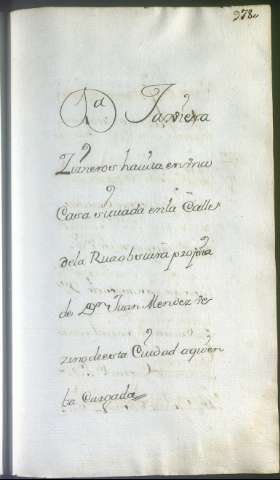 978
Da Javiera
Zisneros havita en vna
Casa situada en la Calle
de la Rua obscura propia
de Dn Juan Mendez ve
zino de esta Ciudad a quien
ba Cargada